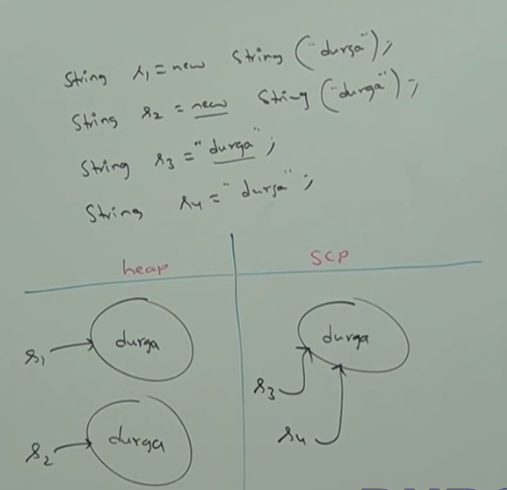 String s1 = new String ("durga");
String s2 = new String ("durga");
String s3 = "durga";
String s4 = "durga";
heap SCP
durga durga
s1
s3
s4
durga
s2